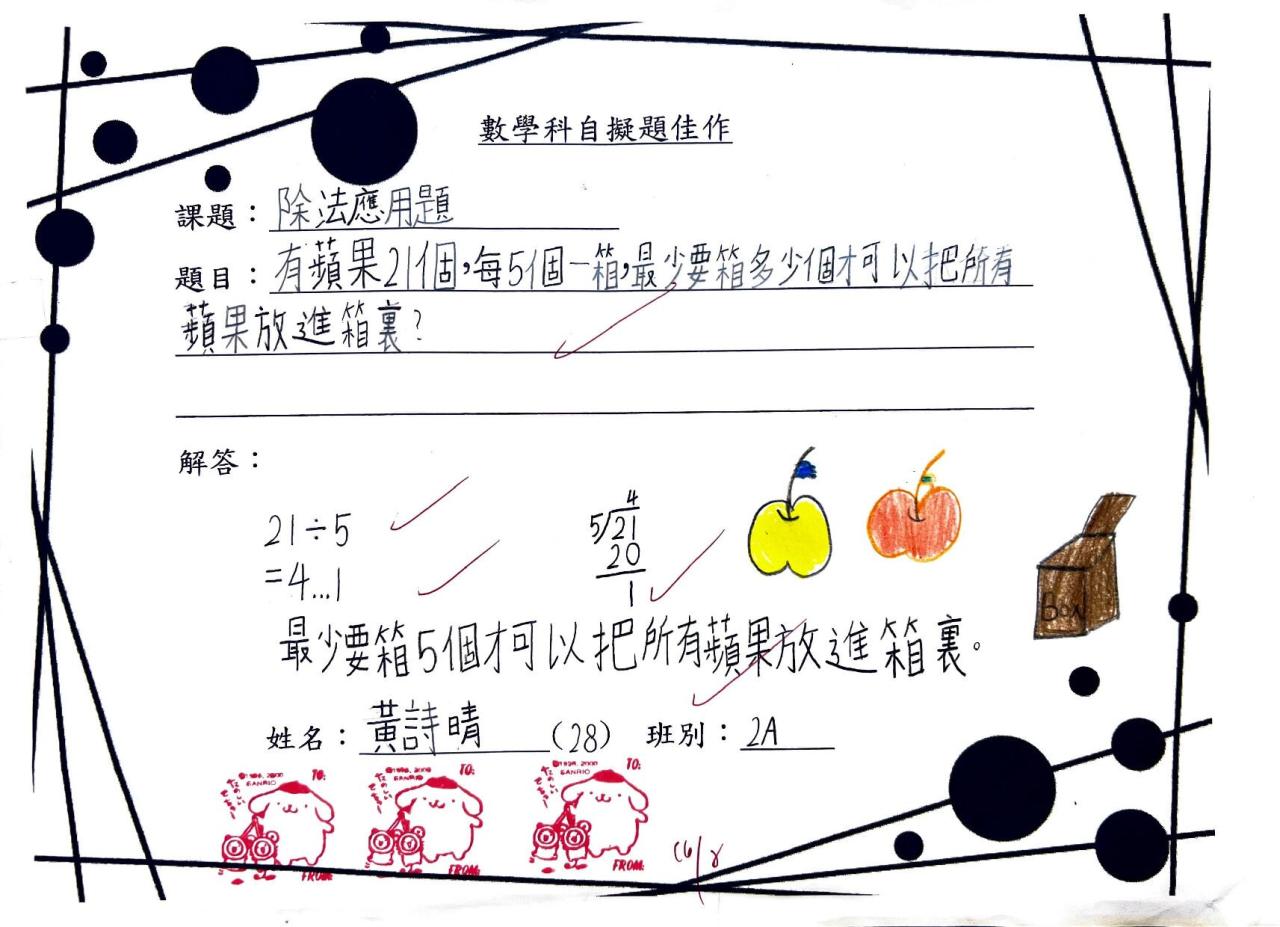 數學科自擬題佳作
課題：除法應用題
題目：有蘋果21個，每5個一箱，最少要箱多少個才可以把所有
蘋果放進箱裏？
解答：
21÷5
=4...1
4
5/21
20
1
Box
最少要箱5個才可以把所有蘋果放進箱裏。
姓名：黃詩晴（28） 班別：2A
©1996, 2000 SANRIO TO:
FROM:
©1996, 2000 SANRIO TO:
FROM:
©1996, 2000 SANRIO TO:
FROM: